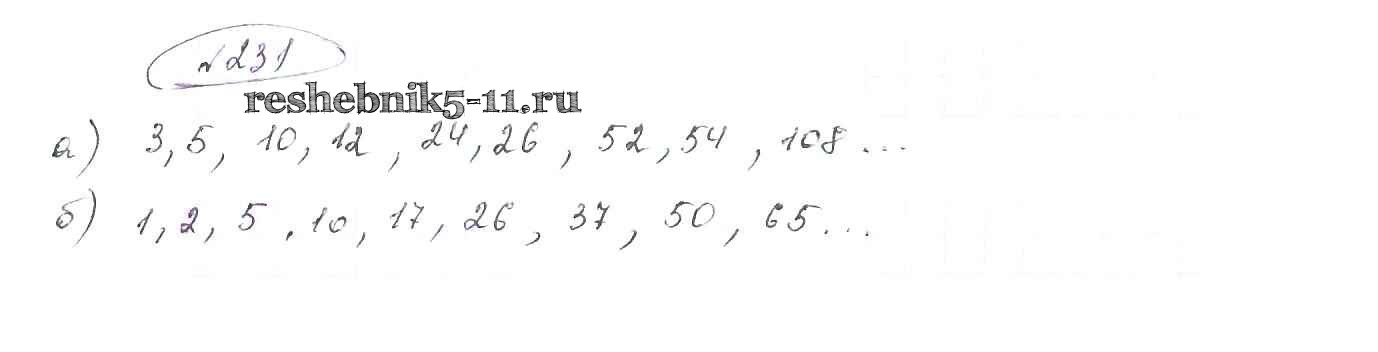 №231
reshebnik5-11.ru
а) 3, 5, 10, 12, 24, 26, 52, 54, 108...
б) 1, 2, 5, 10, 17, 26, 37, 50, 65...